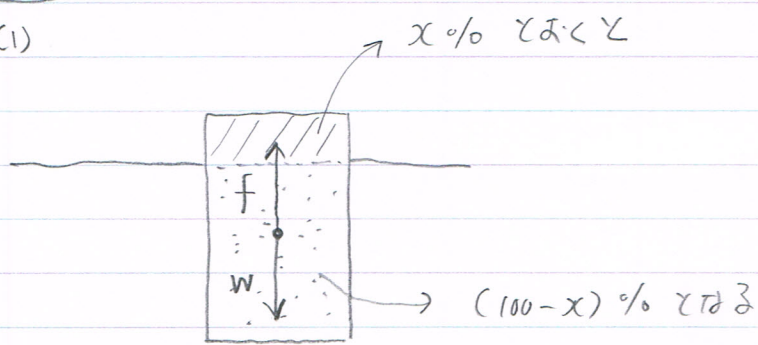 (1)
x% とおくと
f
w
(100-x)% となる